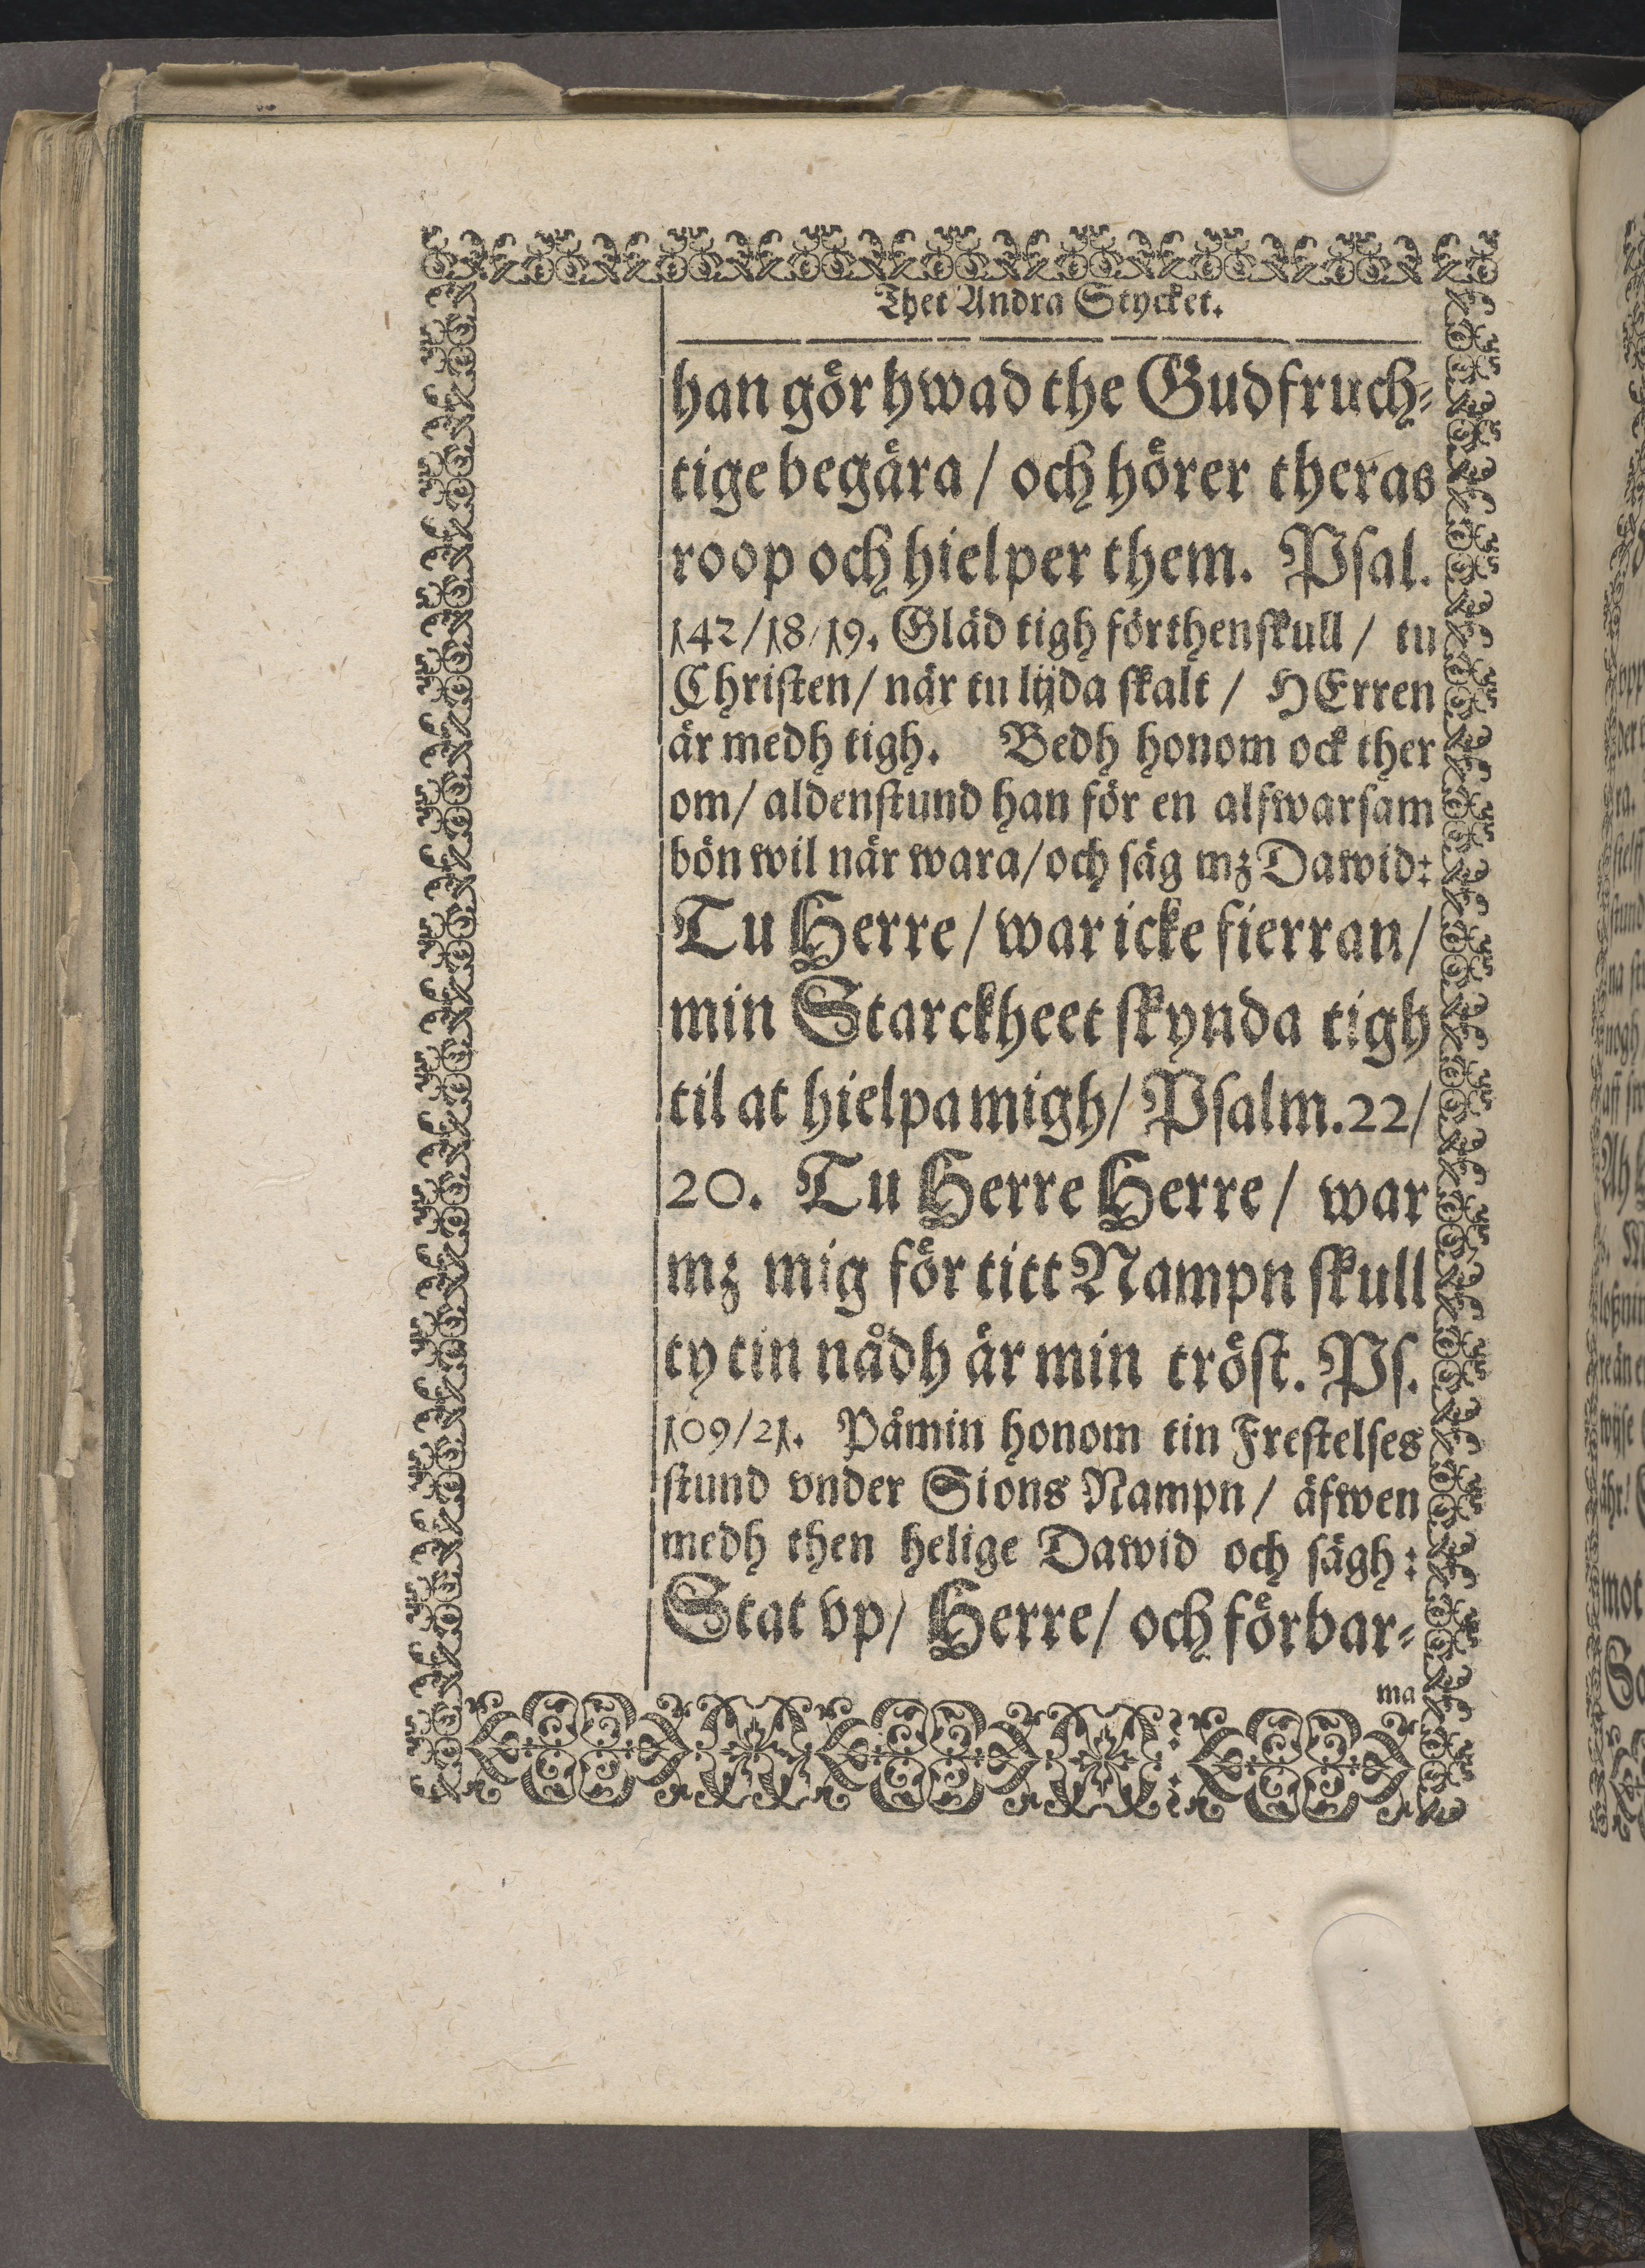 Thet Andra Stycket.
han gör hwad the Gudfruch⸗
tige begära / och hörer theras
roop och hielper them. Psal.
142/18/19. Gläd tigh förthenskull / tu
Christen/ när tu lijda skalt / HErren
är medh tigh. Bedh honom ock ther
om/ aldenstund han för en alfwarsam
bön wil när wara/och säg mz Dawid:
Tu Herre/ war icke fierran/
min Starckheet skynda tigh
til at hielpa migh/ Psalm.22/
20. Tu Herre Herre/ war
mz mig för titt Nampn skull
ty tin nådh är min tröst. Ps.
109/21. Påmin honom tin Frestelses
stund vnder Sions Nampn/ äfwen
medh then helige Dawid och sägh:
Stat vp/ Herre/ och förbar⸗
ma